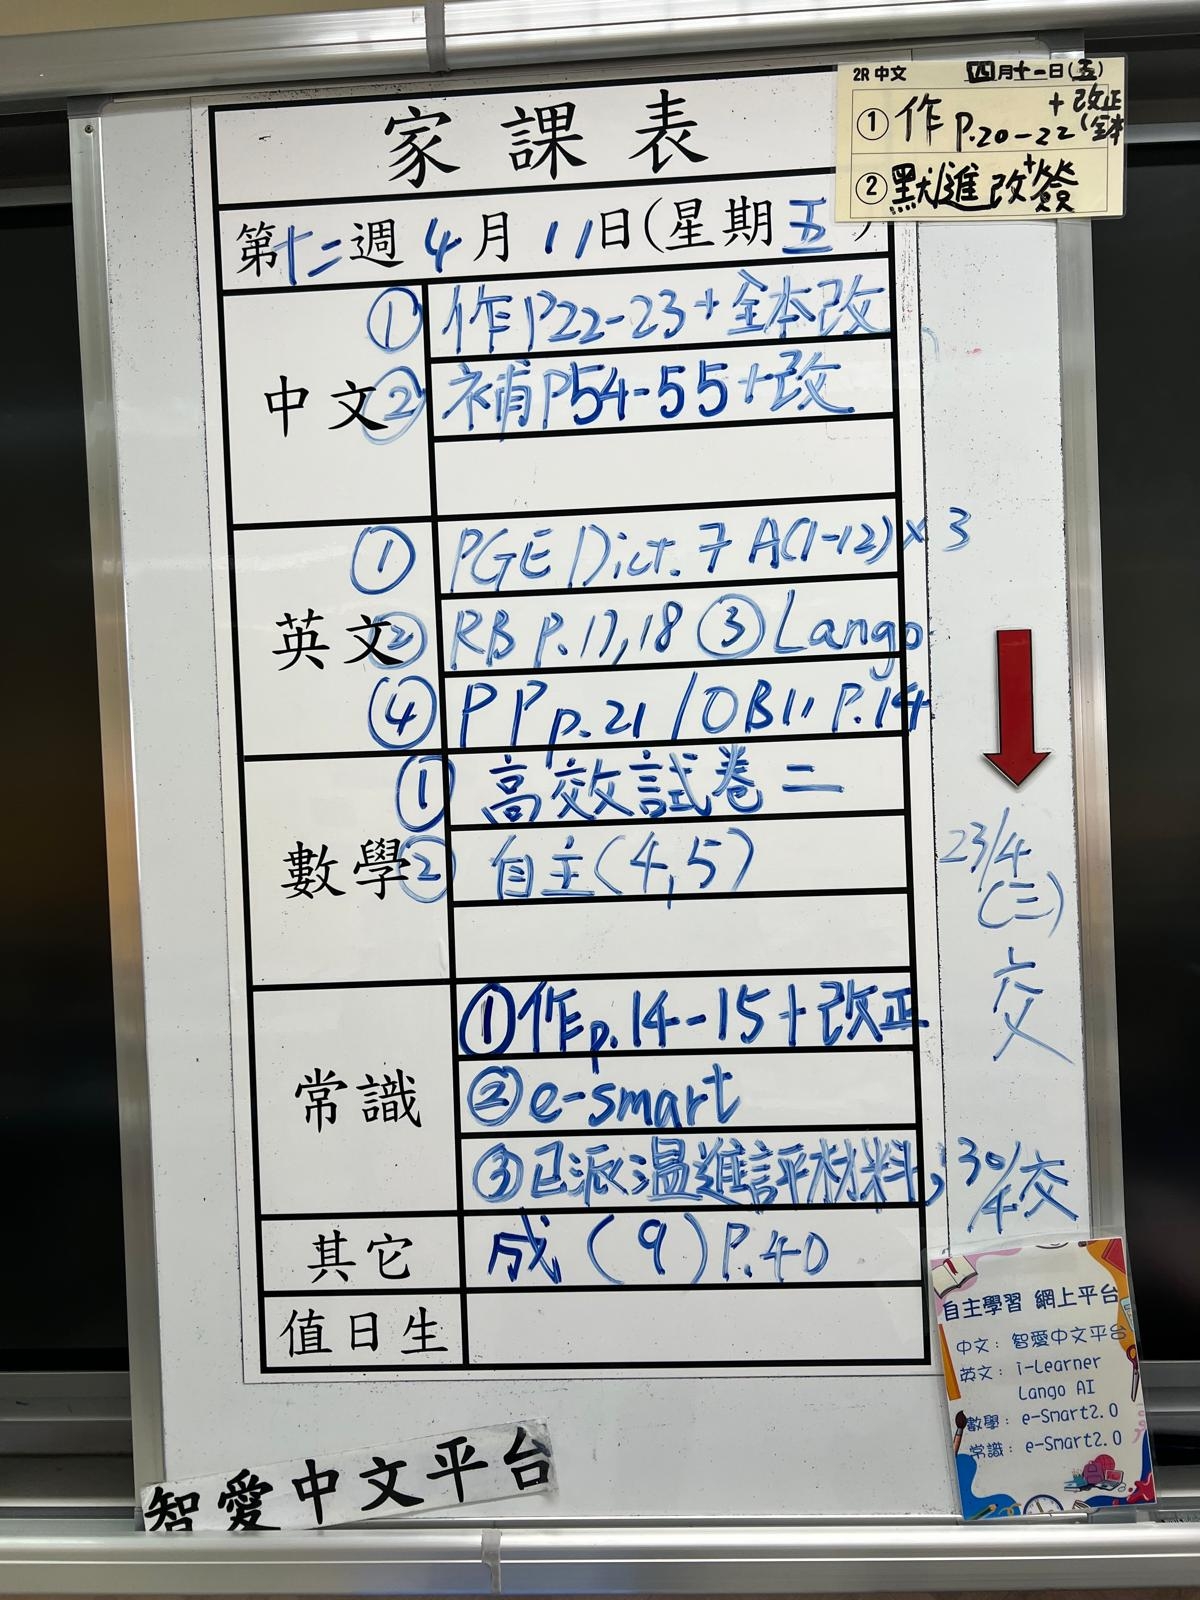 家課表
2R 中文 四月十一日(五)
① 作 P.20-22 + 改正(全本
② 默進改+簽
第十二週 4月11日(星期五)
中文
① 作P22-23+全本改
② 補P54-55+改
英文
① PGE Dict. 7 A(1-12)×3
② RB P.17,18 ③ Lango
④ PP p.21 / OB11 P.14
數學
① 高效試卷二
② 自主(4,5)
23/4
(三)
交
常識
①作p.14-15+改正
②e-smart
③已派溫進評材料, 30/4交
其它
成(9)P.40
值日生
自主學習 網上平台
中文: 智愛中文平台
英文: i-Learner
Lango AI
數學: e-Smart2.0
常識: e-Smart2.0
智愛中文平台